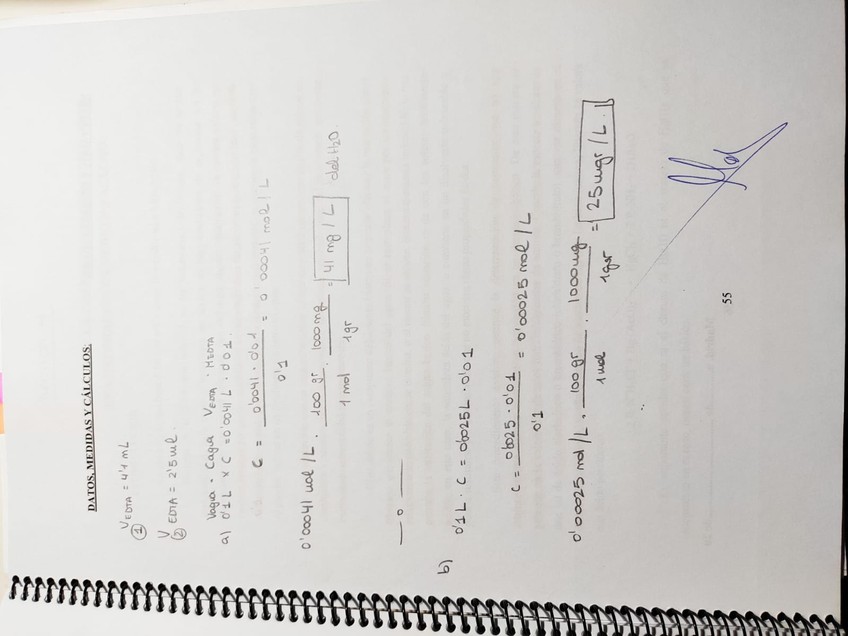 DATOS, MEDIDAS Y CÁLCULOS.
① V EDTA = 4'1 mL
② V EDTA = 2'5 ml.
Vagua · Cagua VEDTA · MEDTA
a) 0'1 L x C = 0'0041 L · 0'01.
C = 0'0041 · 0'01 / 0'1 = 0'00041 mol / L
0'00041 mol / L · 100 gr / 1 mol · 1000 mg / 1 gr = 41 mg / L del H2O.
— o —
b) 0'1 L · C = 0'0025 L · 0'01
C = 0'0025 · 0'01 / 0'1 = 0'00025 mol / L
0'00025 mol / L · 100 gr / 1 mol · 1000 mg / 1 gr = 25 mgr / L.
55